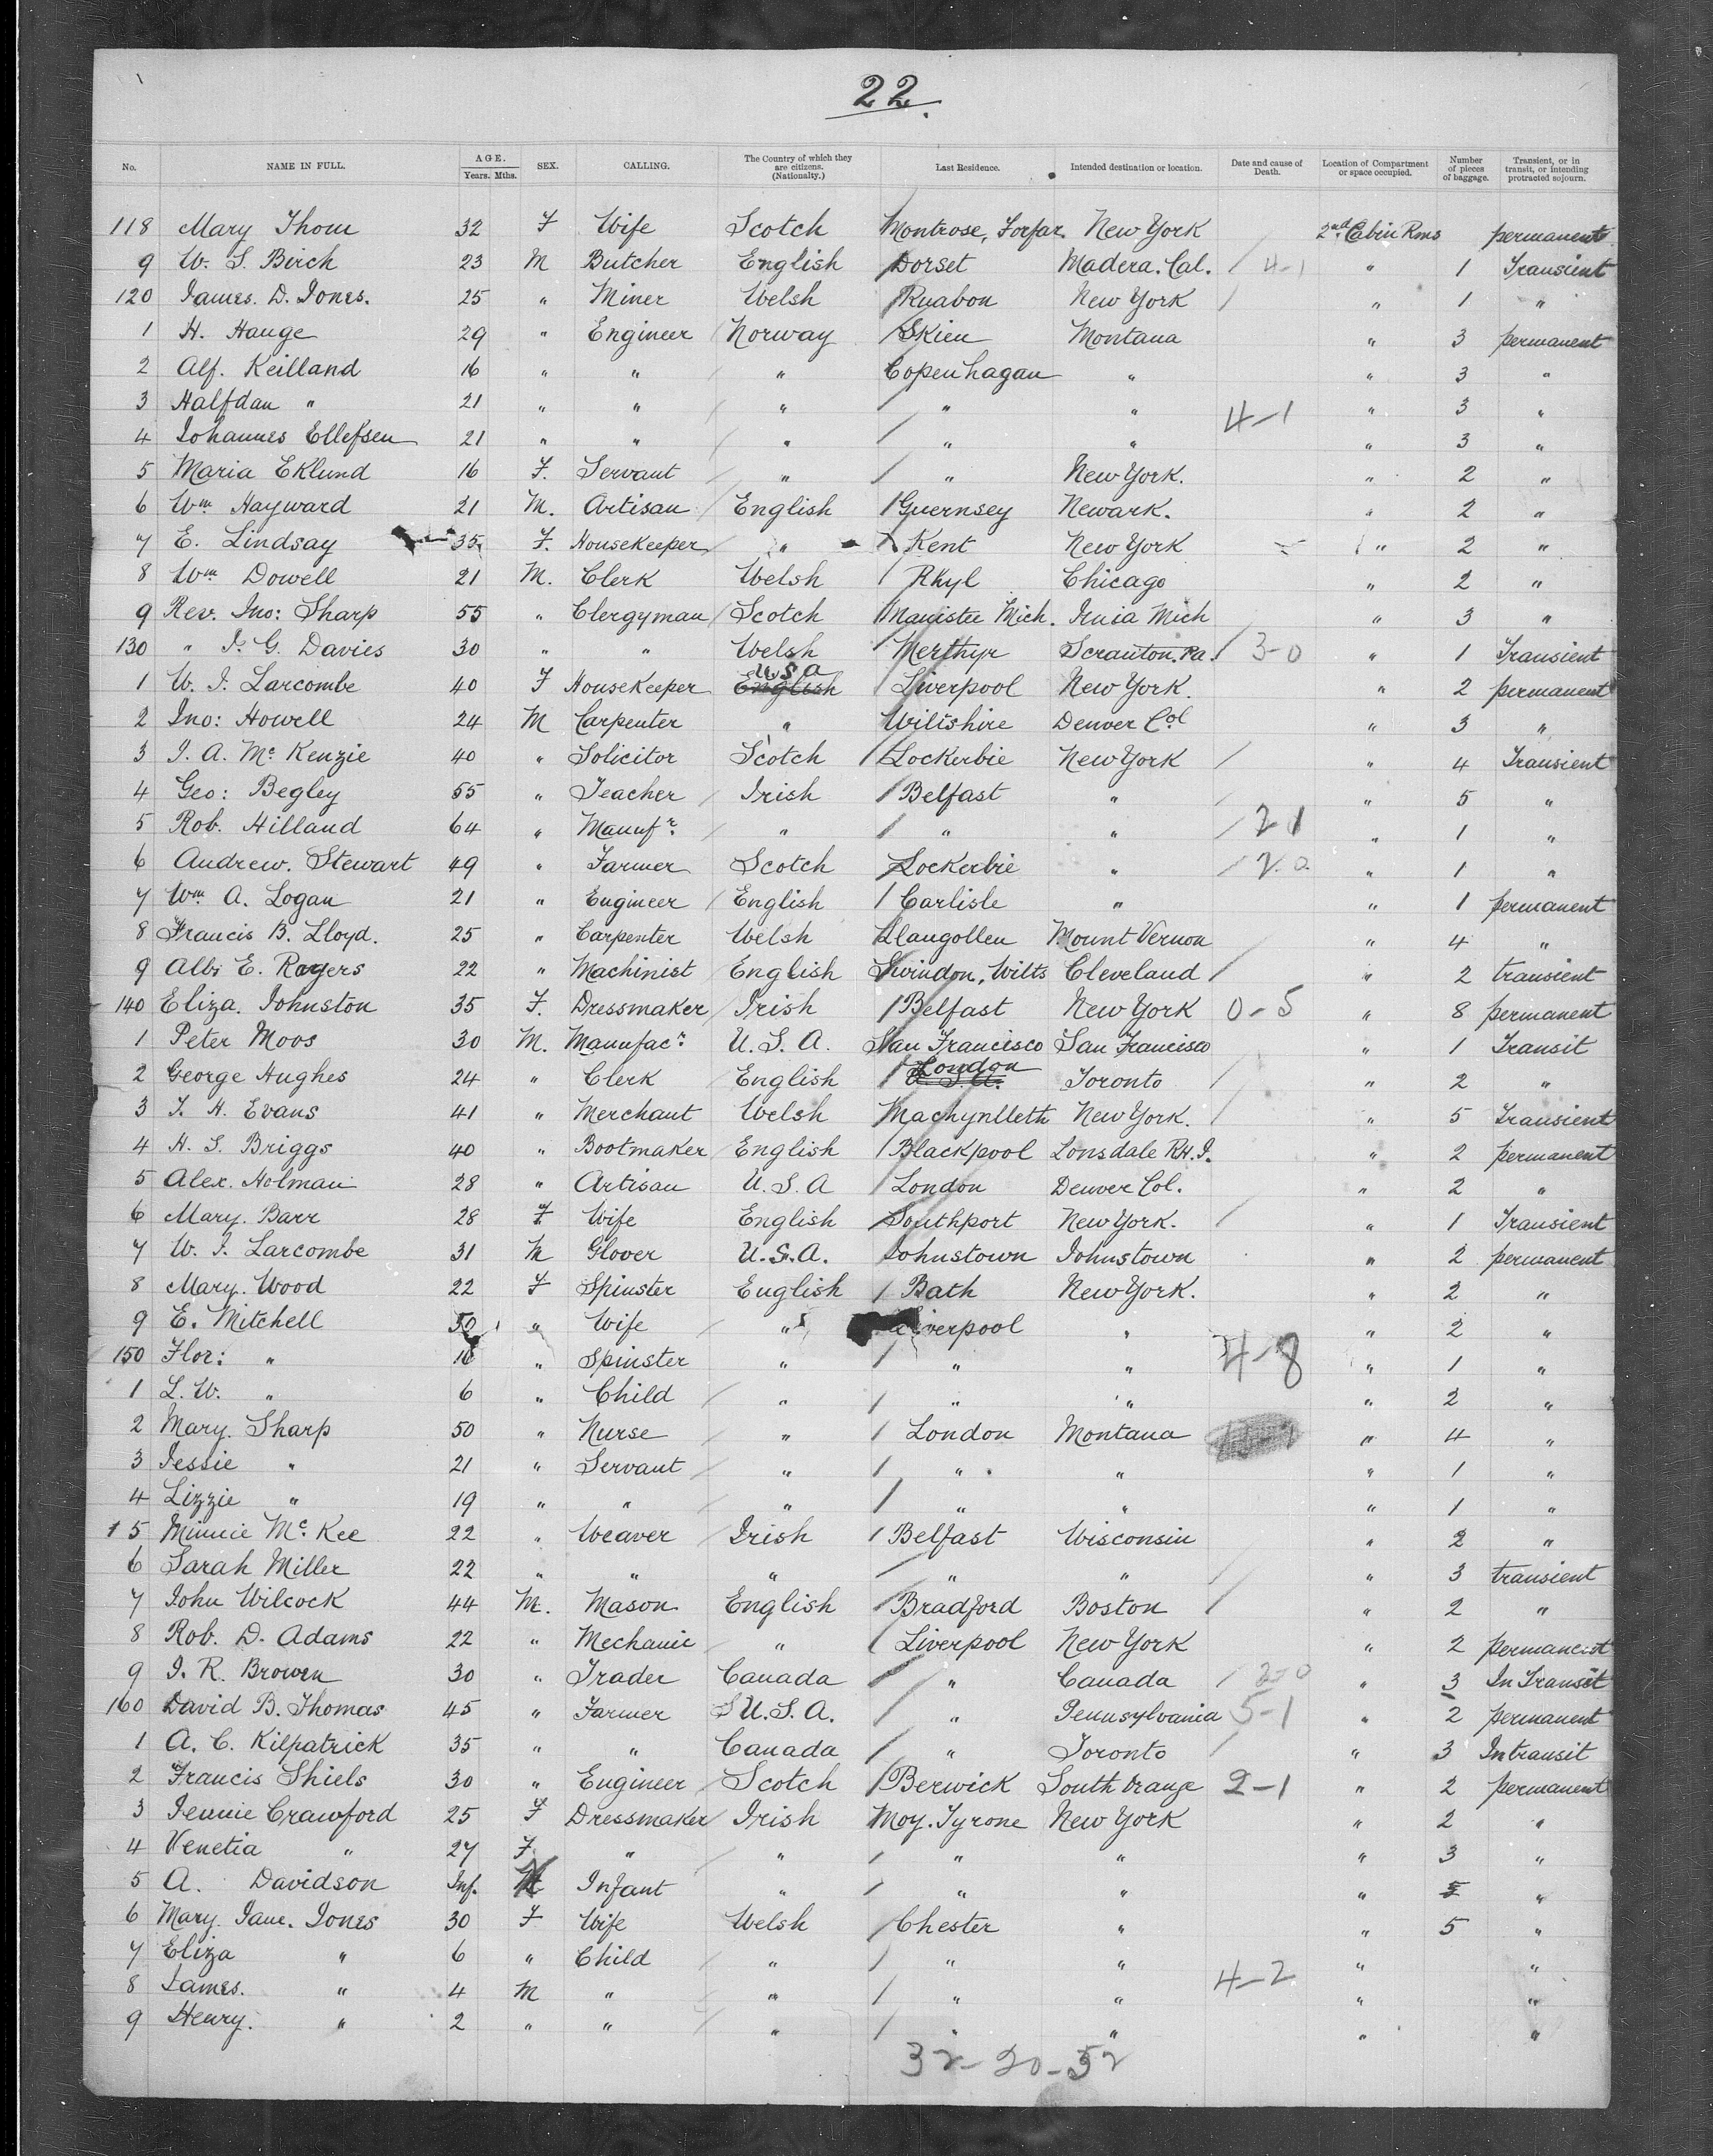 22.
No. NAME IN FULL. AGE. Years. Mths. SEX. CALLING. The Country of which they are citizens. (Nationalty.) Last Residence. Intended destination or location. Date and cause of Death. Location of Compartment or space occupied. Number of pieces of baggage. Transient, or in transit, or intending protracted sojourn.
118 Mary Thom 32 F Wife Scotch Montrose, Forfar. New York 2nd Cabin Rms permanent
9 W. S. Birch 23 M Butcher English Dorset Madera. Cal. 4-1 " 1 Transient
120 James. D. Jones. 25 " Miner Welsh Ruabon New York " 1 "
1 H. Hauge 29 " Engineer Norway Skien Montana " 3 permanent
2 Alf. Keilland 16 " " " Copenhagan " " 3 "
3 Halfdan " 21 " " " " " 4-1 " 3 "
4 Johannes Ellefsen 21 " " " " " " 3 "
5 Maria Eklund 16 F. Servant " " New York. " 2 "
6 Wm Hayward 21 M. Artisan English Guernsey Newark. " 2 "
7 E. Lindsay 35 F. Housekeeper " Kent New York " 2 "
8 Wm Dowell 21 M. Clerk Welsh Rhyl Chicago " 2 "
9 Rev. Jno: Sharp 55 " Clergyman Scotch Manistee Mich. Mich " 3 "
130 " J. G. Davies 30 " " Welsh Merthyr Scranton. Pa. 3-0 " 1 Transient
1 W. J. Larcombe 40 F Housekeeper English U S A Liverpool New York. " 2 permanent
2 Jno: Howell 24 M Carpenter " Wiltshire Denver Col " 3 "
3 J. A. Mc Kenzie 40 " Solicitor Scotch Lockerbie New York " 4 Transient
4 Geo: Begley 55 " Teacher Irish Belfast " " 5 "
5 Rob. Hilland 64 " Manufr. " " " 2 1 " 1 "
6 Andrew. Stewart 49 " Farmer Scotch Lockerbie " 2.0 " 1 "
7 Wm A. Logan 21 " Engineer English Carlisle " " 1 permanent
8 Francis B. Lloyd. 25 " Carpenter Welsh Llangollen Mount Vernon " 4 "
9 E. Rogers 22 " Machinist English Swindon, Wilts Cleveland " 2 transient
140 Eliza. Johnston 35 F. Dressmaker Irish Belfast New York 0-5 " 8 permanent
1 Peter Moos 30 M. Manufacr. U. S. A. San Francisco San Francisco " 1 Transit
2 George Hughes 24 " Clerk English U. S. A. London Toronto " 2 "
3 J. H. Evans 41 " Merchant Welsh Machynlleth New York. " 5 Transient
4 H. S. Briggs 40 " Bootmaker English Blackpool Lonsdale RH. I. " 2 permanent
5 Alex. Holman 28 " Artisan U. S. A London Denver Col. " 2 "
6 Mary. Barr 28 F Wife English Southport New York. " 1 Transient
7 W. J. Larcombe 31 M Glover U. S. A. Johnstown Johnstown " 2 permanent
8 Mary. Wood 22 F Spinster English Bath New York. " 2 "
9 E. Mitchell 50 " Wife " Liverpool " " 2 "
150 Flor: " 16 " Spinster " " " 4-8 " 1 "
1 L. W. " 6 " Child " " " " 2 "
2 Mary. Sharp 50 " Nurse " London Montana " 4 "
3 Jessie " 21 " Servant " " " " 1 "
4 Lizzie " 19 " " " " " " 1 "
5 Minnie Mc Kee 22 " Weaver Irish Belfast Wisconsin " 2 "
6 Sarah Miller 22 " " " " " " 3 transient
7 John Wilcock 44 M. Mason English Bradford Boston " 2 "
8 Rob. D. Adams 22 " Mechanic " Liverpool New York " 2 permanent
9 J. R. Brown 30 " Trader Canada " Canada 2-0 " 3 In Transit
160 David B. Thomas 45 " Farmer U. S. A. " Pennsylvania 5-1 " 2 permanent
1 A. C. Kilpatrick 35 " " Canada " Toronto " 3 Intransit
2 Francis Shiels 30 " Engineer Scotch Berwick South Orange 2-1 " 2 permanent
3 Jennie Crawford 25 F Dressmaker Irish Moy. Tyrone New York " 2 "
4 Venetia " 27 F. " " " " " 3 "
5 A. Davidson Inf. M Infant " " " " 5 "
6 Mary. Jane. Jones 30 F Wife Welsh Chester " " 5 "
7 Eliza " 6 " Child " " " " "
8 James. " 4 M " " " " 4-2 " "
9 Henry. " 2 " " " " " " "
32-20-52